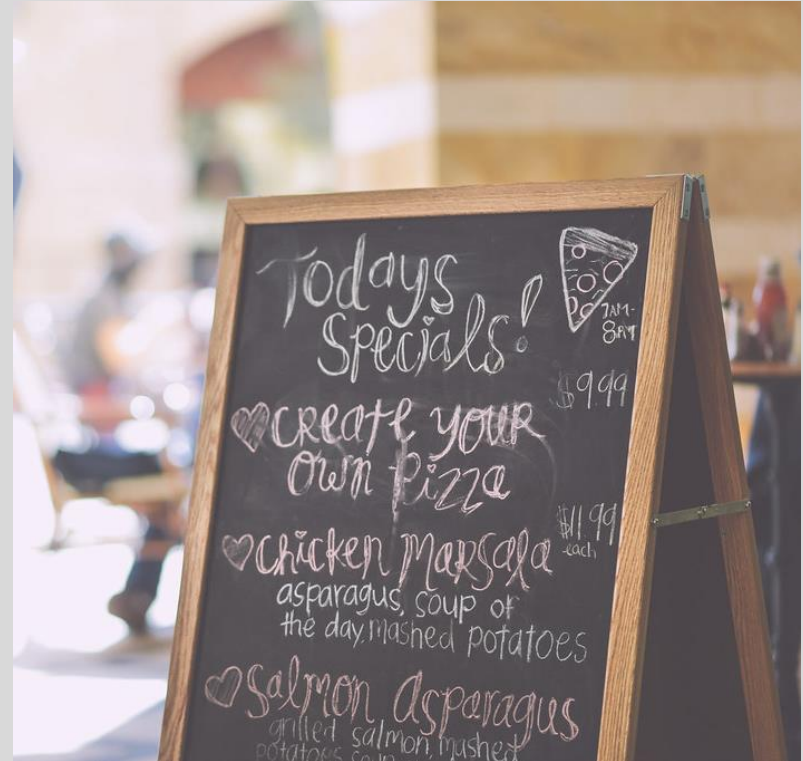 Todays
Specials!
7AM-
8PM
$9.99
CREATE YOUR
OWN Pizza
$11.99
each
Chicken MARSala
asparagus, soup of
the day, mashed potatoes
Salmon Asparagus
grilled salmon, mashed
potatoes, soup